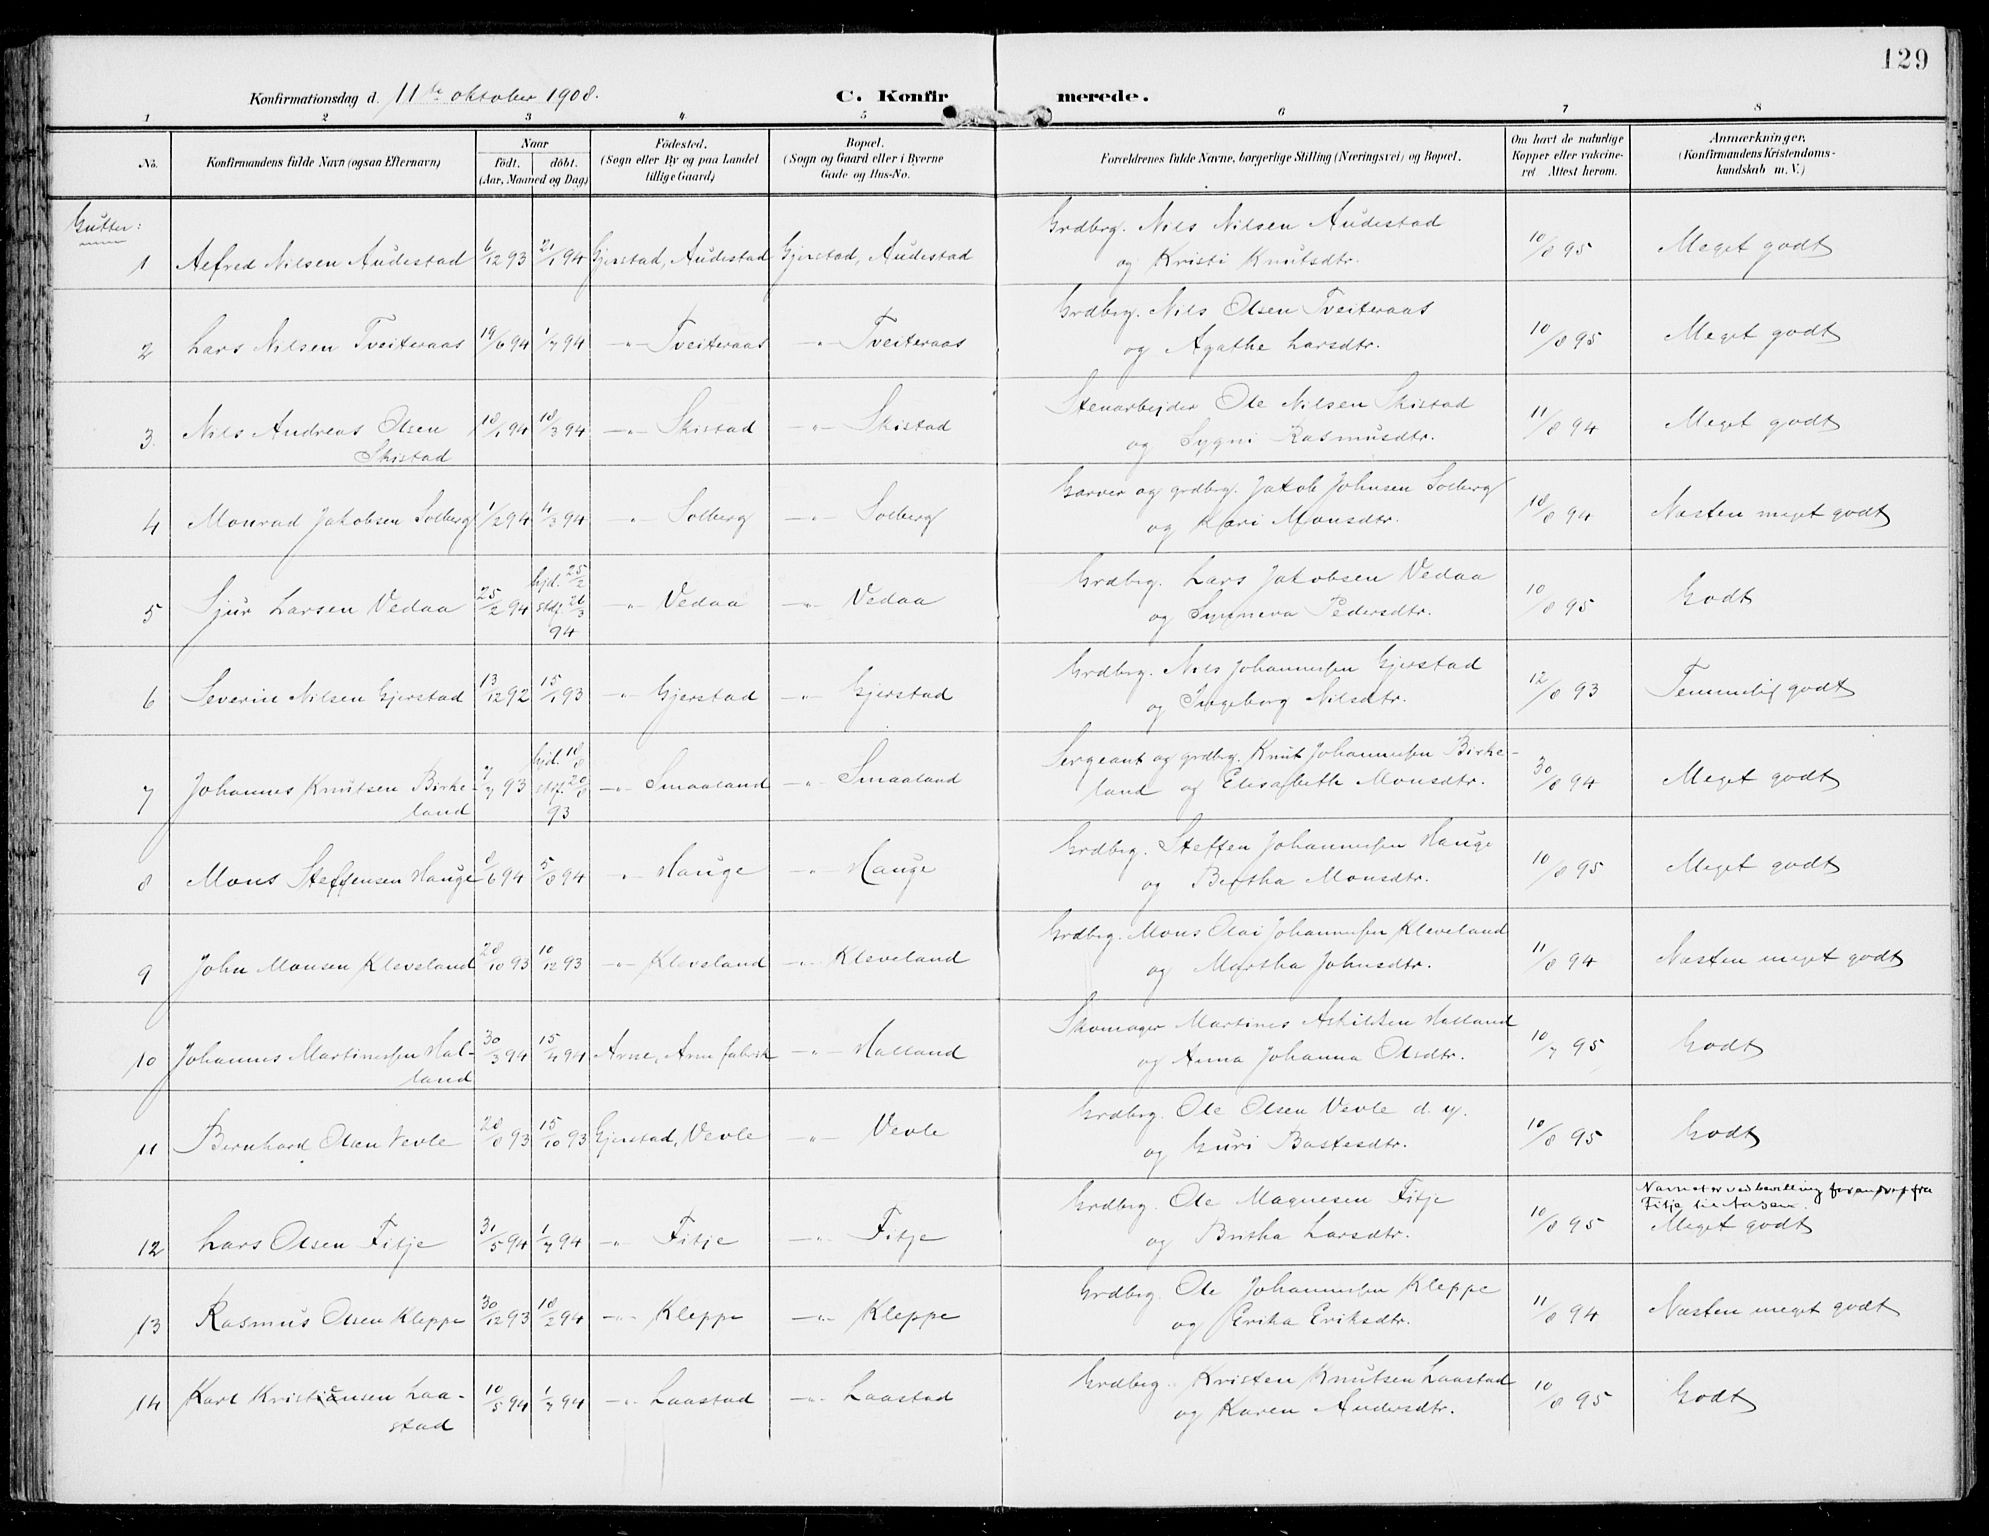 129
Konfirmationsdag d. 11te oktober 1908.
C. Konfirmerede.
1 2 3 4 5 6 7 8
No. Konfirmandens fulde Navn (ogsaa Efternavn) Naar født. døbt. (Aar, Maaned og Dag) Fødested. (Sogn eller By og paa Landet tillige Gaard) Bopæl. (Sogn og Gaard eller i Byerne Gade og Hus-No. Forældrenes fulde Navne, borgerlige Stilling (Næringsvei) og Bopæl. Om havt de naturlige Kopper eller vakcineret Attest herom. Anmærkninger. (Konfirmandens Kristendomskundskab m. V.)
Gutter:
1 Alfred Nilsen Audestad 6/12 93 21/1 94 Gjerstad, Audestad Gjerstad, Audestad Grdbrg. Nils Nilsen Audestad og Kristi Knutsdtr. 10/8 95 Meget godt
2 Lars Nilsen Tveiteraas 19/6 94 1/7 94 -"- Tveiteraas -"- Tveiteraas Grdbrg. Nils Olsen Tveiteraas og Agathe Larsdtr. 10/8 95 Meget godt
3. Nils Andreas Olsen Skistad 18/1 94 18/3 94 -"- Skistad -"- Skistad Stenarbejder Ole Nilsen Skistad og Sygni Rasmusdtr. 11/8 94 Meget godt
4 Monrad Jakobsen Solberg 1/2 94 4/3 94 -"- Solberg -"- Solberg Garver og grdbrg. Jakob Johnsen Solberg og Kari Monsdtr. 18/8 94 Næsten meget godt
5 Sjur Larsen Vedaa 25/2 94 hjd. 25/2 stdf. 26/3 94 -"- Vedaa -"- Vedaa Grdbrg. Lars Jakobsen Vedaa og Synneva Pedersdtr. 10/8 95 Godt
6 Severin Nilsen Gjerstad 13/12 92 15/1 93 -"- Gjerstad -"- Gjerstad Grdbrg. Nils Johannessen Gjerstad og Ingeborg Nilsdtr. 12/8 93 Temmelig godt
7 Johannes Knutsen Birkeland 7/7 93 hjd. 18/8 stdf. 20/8 93 -"- Smaaland -"- Smaaland Sergeant og grdbrg. Knut Johannessen Birkeland og Elisabeth Monsdtr. 30/8 94 Meget godt
8 Mons Steffensen Hauge 8/6 94 5/8 94 -"- Hauge -"- Hauge Grdbrg. Steffen Johannessen Hauge og Bertha Monsdtr. 10/8 95 Meget godt
9 John Monsen Kleveland 28/10 93 10/12 93 -"- Kleveland -"- Kleveland Grdbrg. Mons Olai Johannessen Kleveland og Martha Johnsdtr. 11/8 94 Næsten meget godt
10 Johannes Martinessen Halland 30/3 94 15/4 94 Arne, Arne fabrik -"- Halland Skomager Martines Askildsen Halland og Anna Johanna Olsdtr. 10/7 95 Godt
11 Bernhard Olsen Vevle 28/8 93 15/10 93 Gjerstad, Vevle -"- Vevle Grdbrg. Ole Olsen Vevle d. y. og Guri Bastesdtr. 10/8 95 Godt
12 Lars Olsen Fitje 31/5 94 1/7 94 -"- Fitje -"- Fitje Grdbrg. Ole Magnesen Fitje og Britha Larsdtr. 10/8 95 Navnet er ved bevilling forandret fra Fitje til Aasen. Meget godt
13 Rasmus Olsen Kleppe 30/12 93 18/2 94 -"- Kleppe -"- Kleppe Grdbrg. Ole Johannessen Kleppe og Erika Eriksdtr. 11/8 94 Næsten meget godt
14 Karl Kristensen Laastad 10/5 94 1/7 94 -"- Laastad -"- Laastad Grdbrg. Kristen Knutsen Laastad og Karen Andersdtr. 10/8 95 Godt